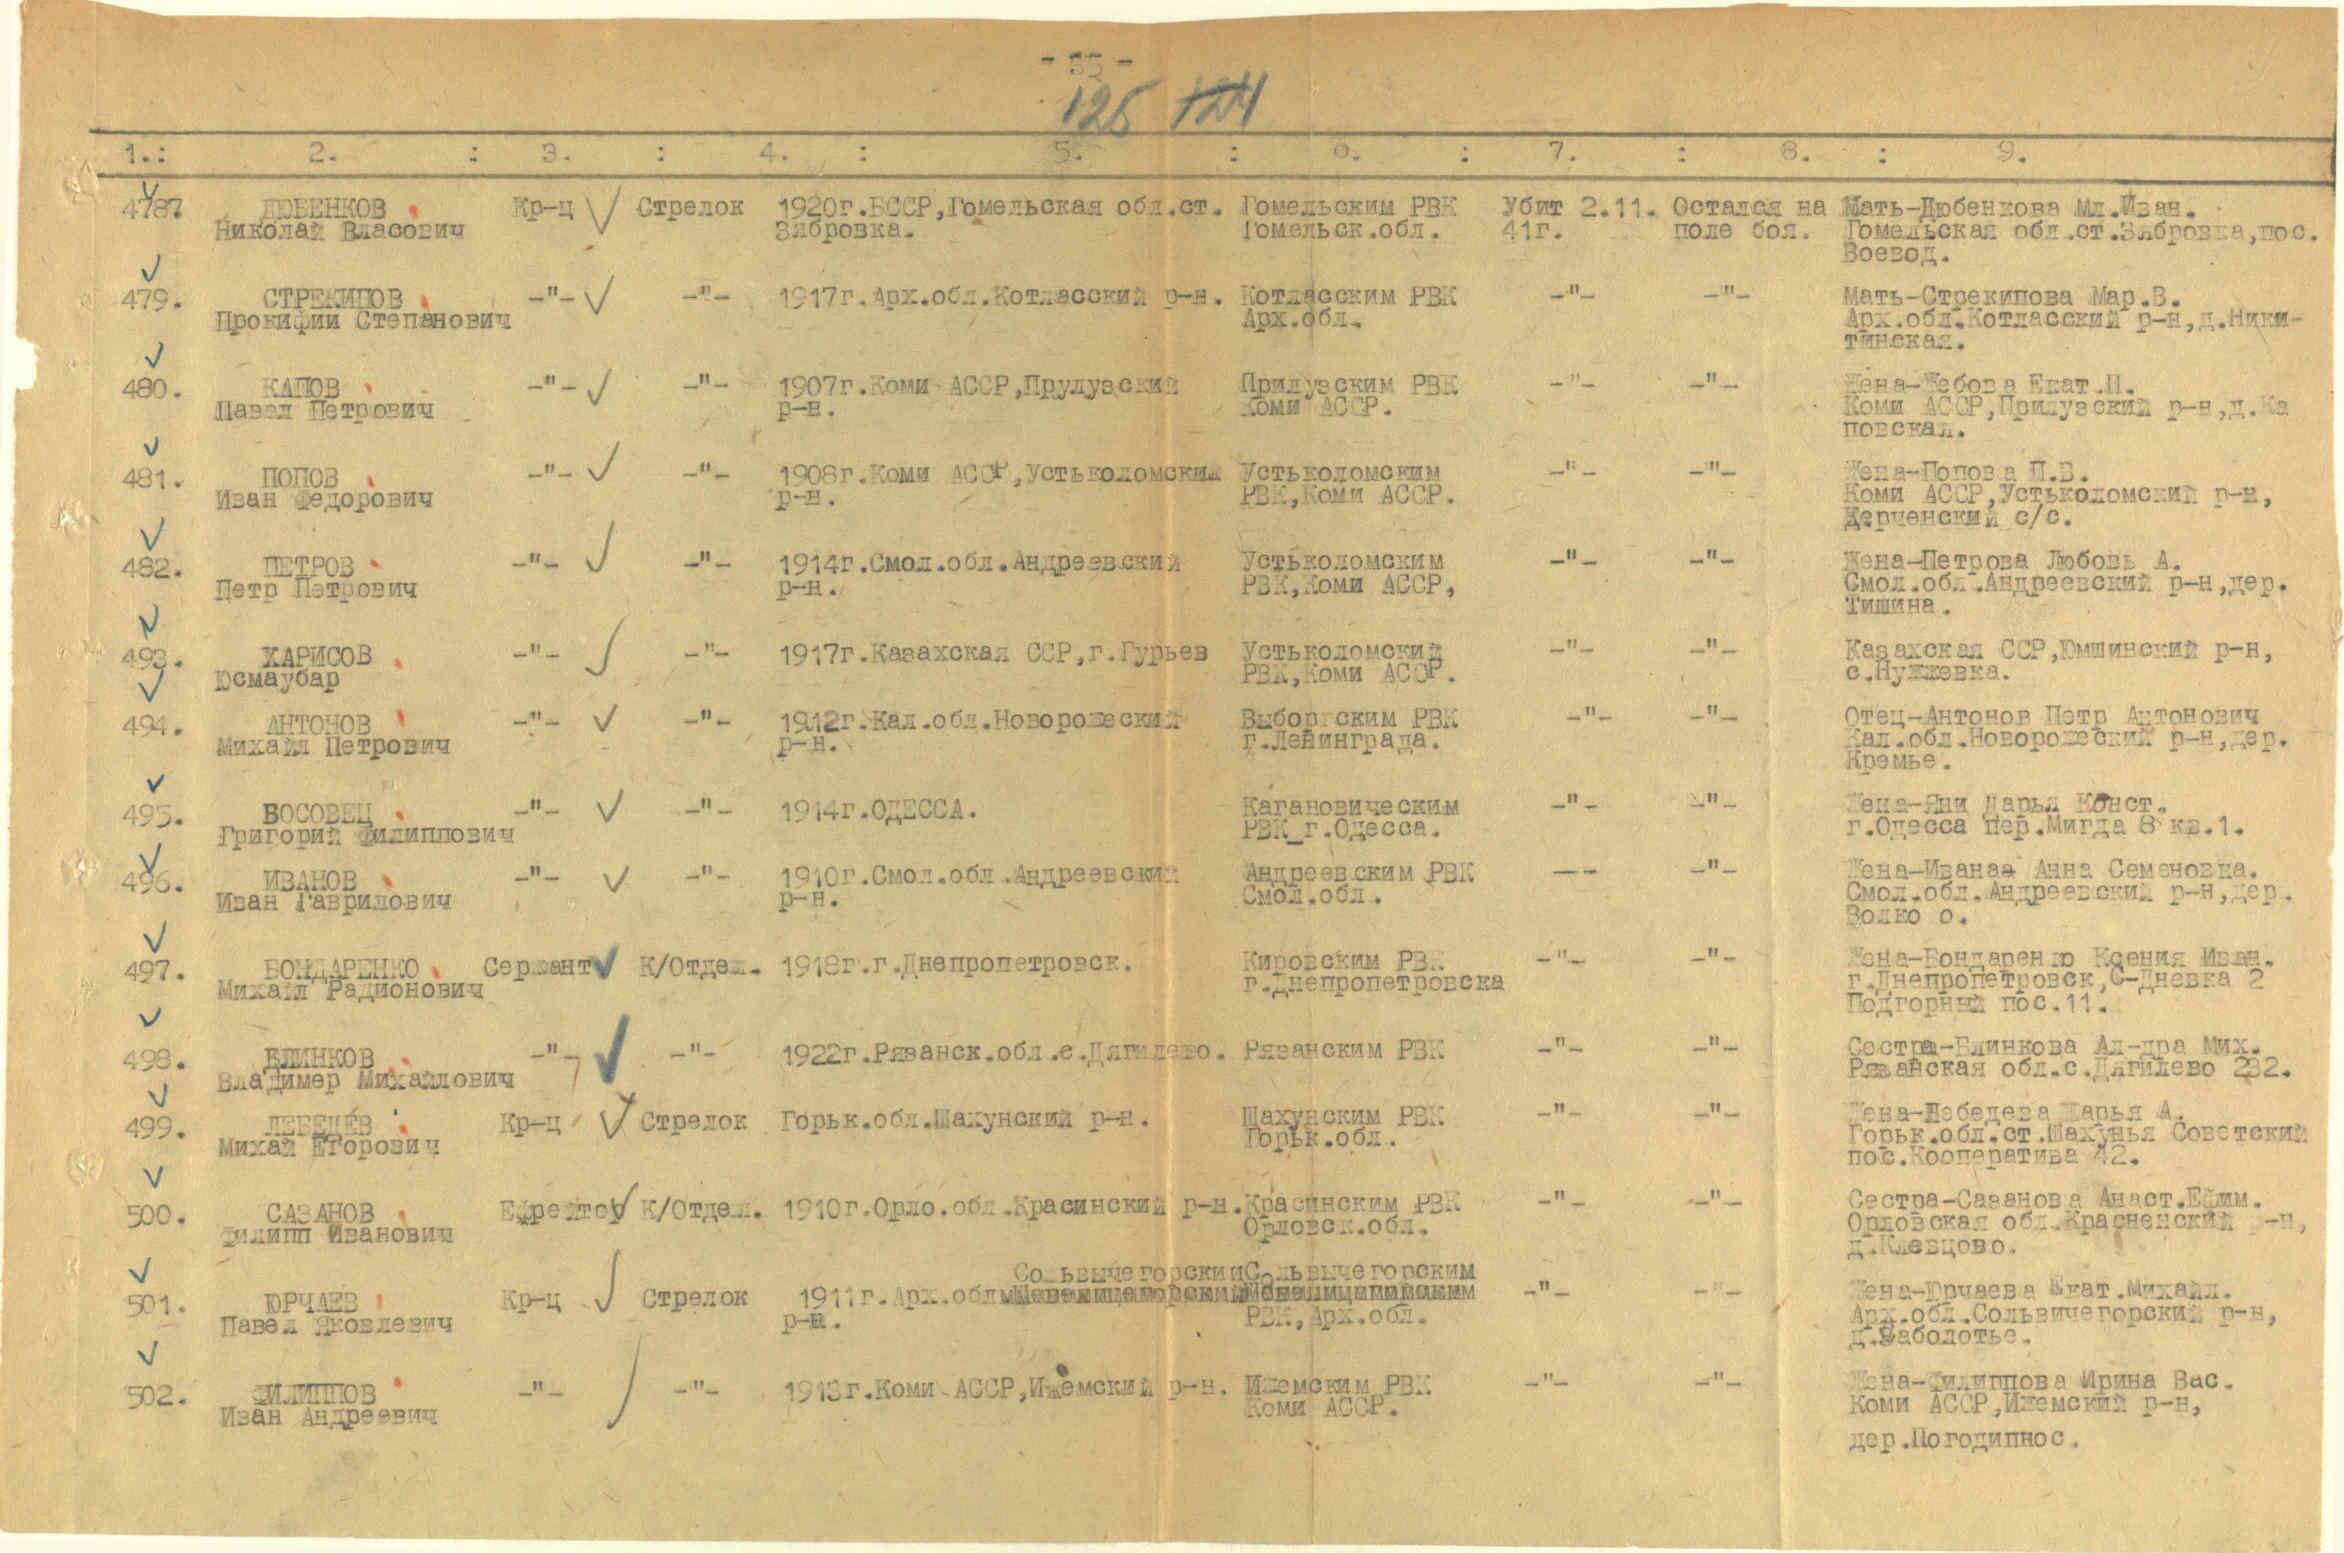 - 35 -
125 124
1.: 2. : 3. : 4. : 5. : 6. : 7. : 8. : 9.
4787 ДЮБЕНКОВ Кр-ц Стрелок 1920г.БССР,Гомельская обл.ст. Гомельским РВК Убит 2.11. Остался на Мать-Дюбенкова Мл.Иван.
Николай Власович Зябровка. Гомельск.обл. 41г. поле боя. Гомельская обл.ст.Зябровка,пос.
Воевод.
479. СТРЕКИПОВ -"- -"- 1917г.Арх.обл.Котласский р-н. Котласским РВК -"- -"- Мать-Стрекипова Мар.В.
Прокифии Степанович Арх.обл. Арх.обл.Котласский р-н,д.Ники-
тинская.
480. КАПОВ -"- -"- 1907г.Коми АССР,Прулузский Прилузским РВК -"- -"- Жена-Жебова Екат.П.
Павел Петрович р-н. Коми АССР. Коми АССР,Прилузский р-н,д.Ка
повская.
481. ПОПОВ -"- -"- 1908г.Коми АССР,Устьколомский Устьколомским -"- -"- Жена-Попова П.В.
Иван Федорович р-н. РВК,Коми АССР. Коми АССР,Устьколомский р-н,
Жерченский с/с.
482. ПЕТРОВ -"- -"- 1914г.Смол.обл.Андреевский Устьколомским -"- -"- Жена-Петрова Любовь А.
Петр Петрович р-н. РВК,Коми АССР, Смол.обл.Андреевский р-н,дер.
Тишина.
493. ХАРИСОВ -"- -"- 1917г.Казахская ССР,г.Гурьев Устьколомский -"- -"- Казахская ССР,Юмшинский р-н,
Юсмаубар РВК,Коми АССР. с.Нужжевка.
494. АНТОНОВ -"- -"- 1912г.Кал.обл.Новорожеский Выборгским РВК -"- -"- Отец-Антонов Петр Антонович
Михаил Петрович р-н. г.Ленинграда. Кал.обл.Новорожеский р-н,дер.
Кремье.
495. ВОСОВЕЦ -"- -"- 1914г.ОДЕССА. Кагановическим -"- -"- Жена-Яни Дарья Конст.
Григорий Филиппович РВК_г.Одесса. г.Одесса пер.Мигда 8 кв.1.
496. ИВАНОВ -"- -"- 1910г.Смол.обл.Андреевский Андреевским РВК -- -"- Жена-Иванаа Анна Семеновна.
Иван Гаврилович р-н. Смол.обл. Смол.обл.Андреевский р-н,дер.
Волко о.
497. БОНДАРЕНКО Сержант К/Отдел. 1918г.г.Днепропетровск. Кировским РВК -"- -"- Жена-Бондаренко Ксения Иван.
Михаил Радионович г.Днепропетровска г.Днепропетровск,С-Дневка 2
Подгорный пос.11.
498. БЛИНКОВ -"- -"- 1922г.Рязанск.обл.с.Дягилево. Рязанским РВК -"- -"- Сестра-Блинкова Ал-дра Мих.
Владимер Михайлович Рязанская обл.с.Дягилево 232.
499. ЛЕБЕДЕВ Кр-ц Стрелок Горьк.обл.Шахунский р-н. Шахунским РВК -"- -"- Жена-Лебедева Дарья А.
Михай Егорович Горьк.обл. Горьк.обл.ст.Шахунья Советский
пос.Кооператива 42.
500. САЗАНОВ Ефрейтор К/Отдел. 1910г.Орло.обл.Красинский р-н. Красинским РВК -"- -"- Сестра-Сазанова Анаст.Ефим.
Филипп Иванович Орловск.обл. Орловская обл.Красненский р-н,
д.Клевцово.
Сольвычегорскии Сольвычегорским
501. ЮРЧАЕВ Кр-ц Стрелок 1911г.Арх.обл -"- -"- Жена-Юрчаева Екат.Михайл.
Павел Яковлевич р-н. РВК,Арх.обл. Арх.обл.Сольвичегорский р-н,
д.Заболотье.
502. ФИЛИППОВ -"- -"- 1913г.Коми АССР,Ижемский р-н. Ижемским РВК -"- -"- Жена-Филиппова Ирина Вас.
Иван Андреевич Коми АССР. Коми АССР,Ижемский р-н,
дер.Погодипнос.